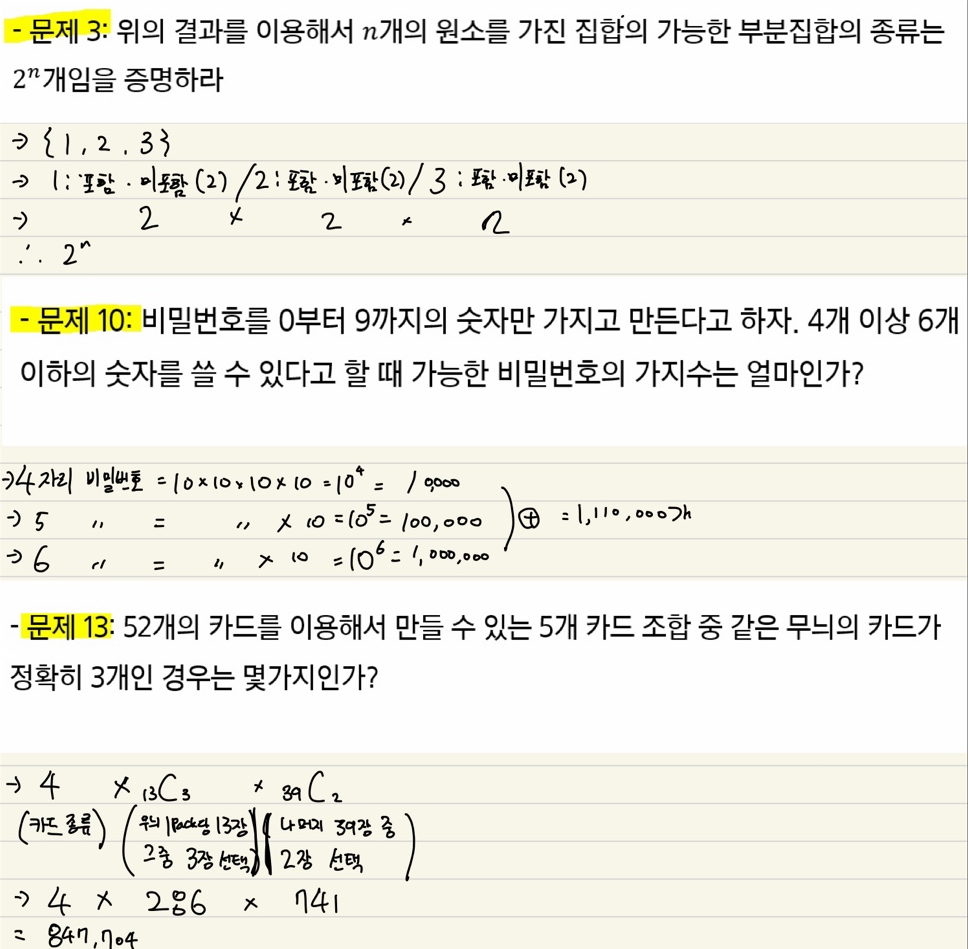 - 문제 3: 위의 결과를 이용해서 n개의 원소를 가진 집합의 가능한 부분집합의 종류는
2ⁿ개임을 증명하라
→ {1, 2, 3}
→ 1: 포함·미포함(2) / 2: 포함·미포함(2) / 3: 포함·미포함(2)
→ 2 × 2 × 2
∴ 2ⁿ
- 문제 10: 비밀번호를 0부터 9까지의 숫자만 가지고 만든다고 하자. 4개 이상 6개
이하의 숫자를 쓸 수 있다고 할 때 가능한 비밀번호의 가지수는 얼마인가?
→ 4자리 비밀번호 = 10×10×10×10 = 10⁴ = 10,000
→ 5 〃 = 〃 × 10 = 10⁵ = 100,000 ⊕ = 1,110,000개
→ 6 〃 = 〃 × 10 = 10⁶ = 1,000,000
- 문제 13: 52개의 카드를 이용해서 만들 수 있는 5개 카드 조합 중 같은 무늬의 카드가
정확히 3개인 경우는 몇가지인가?
→ 4 × ₁₃C₃ × ₃₉C₂
(카드 종류) (무늬 1pack당 13장 (나머지 39장 중
그중 3장 선택) 2장 선택)
→ 4 × 286 × 741
= 847,704